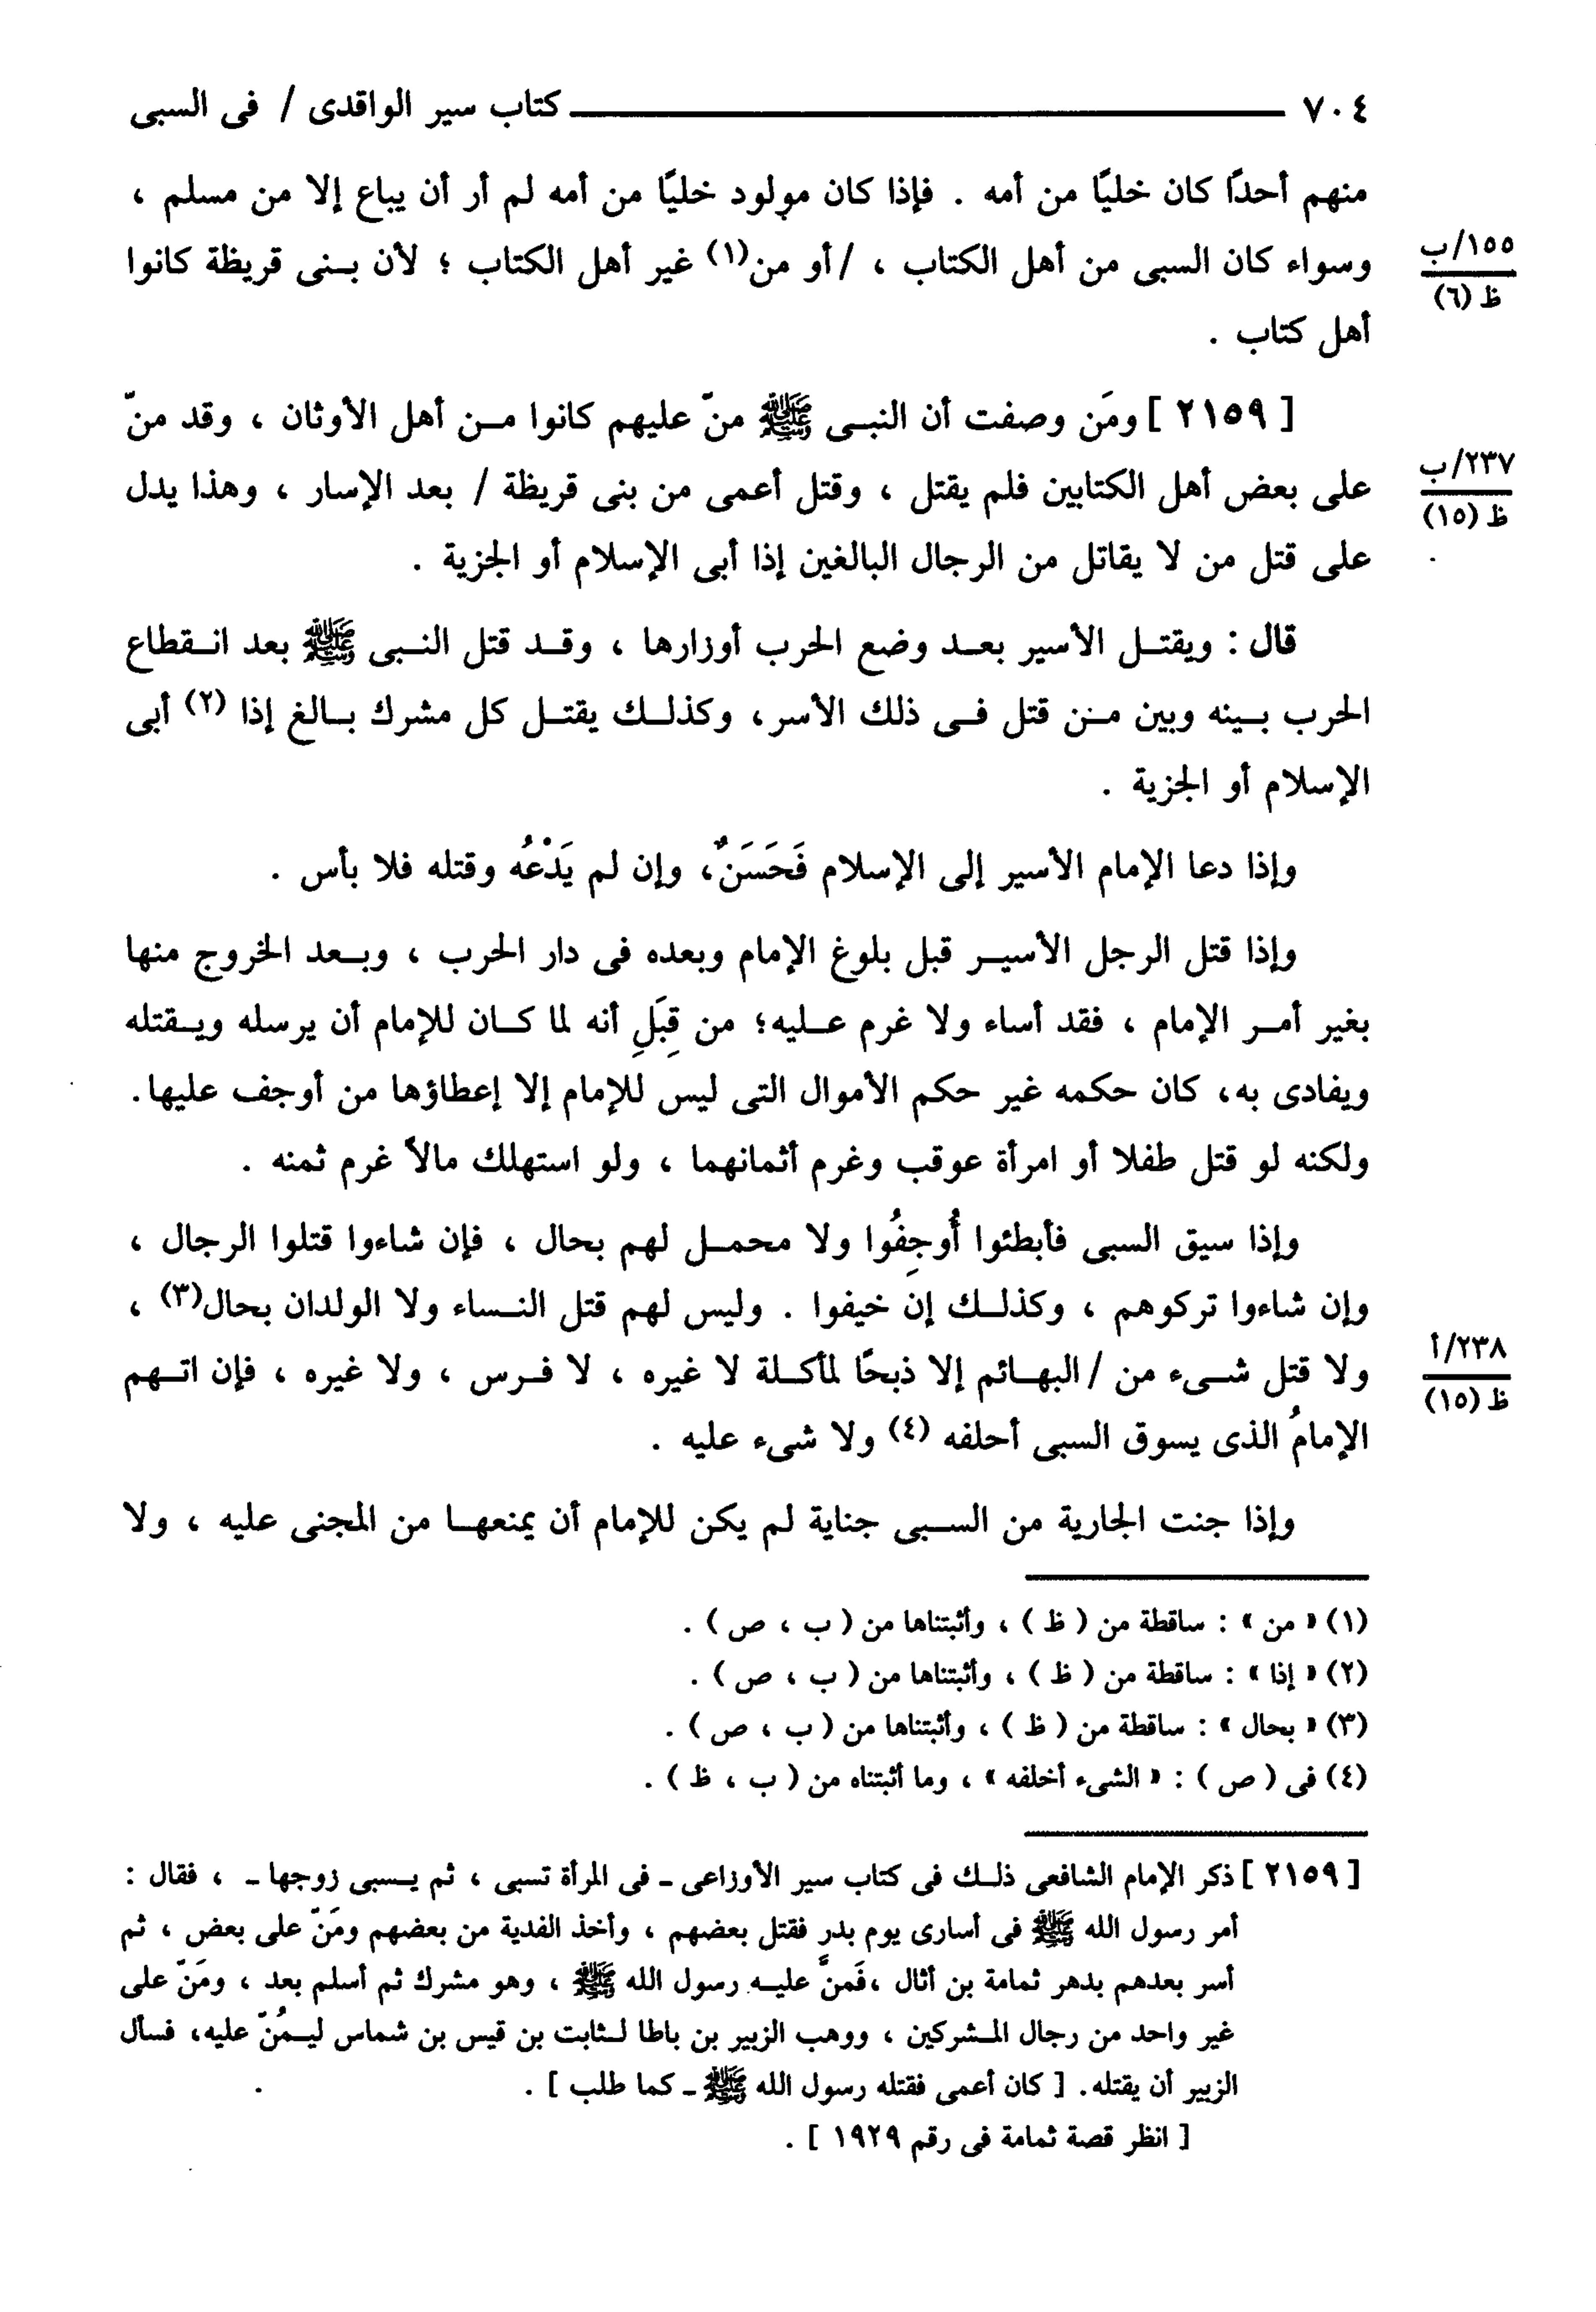 ٧٠٤ ــــــــــــــــــــــــ كتاب سير الواقدى / فى السبى
منهم أحدًا كان خليًا من أمه . فإذا كان مولود خليًا من أمه لم أر أن يباع إلا من مسلم ،
وسواء كان السبى من أهل الكتاب ، /أو من(١) غير أهل الكتاب ؛ لأن بنى قريظة كانوا
١٥٥/ب
ظ (٦)
أهل كتاب .
[ ٢١٥٩ ] ومَن وصفت أن النبى ﷺ منّ عليهم كانوا من أهل الأوثان ، وقد منّ
على بعض أهل الكتابين فلم يقتل ، وقتل أعمى من بنى قريظة / بعد الإسار ، وهذا يدل
٢٣٧/ب
ظ (١٥)
على قتل من لا يقاتل من الرجال البالغين إذا أبى الإسلام أو الجزية .
قال : ويقتل الأسير بعد وضع الحرب أوزارها ، وقد قتل النبى ﷺ بعد انقطاع
الحرب بينه وبين من قتل فى ذلك الأسر، وكذلك يقتل كل مشرك بالغ إذا (٢) أبى
الإسلام أو الجزية .
وإذا دعا الإمام الأسير إلى الإسلام فَحَسَنٌ، وإن لم يَدْعُه وقتله فلا بأس .
وإذا قتل الرجل الأسير قبل بلوغ الإمام وبعده فى دار الحرب ، وبعد الخروج منها
بغير أمر الإمام ، فقد أساء ولا غرم عليه؛ من قِبَلِ أنه لما كان للإمام أن يرسله ويقتله
ويفادى به، كان حكمه غير حكم الأموال التى ليس للإمام إلا إعطاؤها من أوجف عليها.
ولكنه لو قتل طفلا أو امرأة عوقب وغرم أثمانهما ، ولو استهلك مالاً غرم ثمنه .
وإذا سيق السبى فأبطئوا أُوجِفُوا ولا محمل لهم بحال ، فإن شاءوا قتلوا الرجال ،
وإن شاءوا تركوهم ، وكذلك إن خيفوا . وليس لهم قتل النساء ولا الولدان بحال(٣) ،
ولا قتل شىء من / البهائم إلا ذبحًا لمأكلة لا غيره ، لا فرس ، ولا غيره ، فإن اتهم
٢٣٨/أ
ظ (١٥)
الإمامُ الذى يسوق السبى أحلفه (٤) ولا شىء عليه .
وإذا جنت الجارية من السبى جناية لم يكن للإمام أن يمنعها من المجنى عليه ، ولا
(١) « من » : ساقطة من ( ظ ) ، وأثبتناها من ( ب ، ص ) .
(٢) « إذا » : ساقطة من ( ظ ) ، وأثبتناها من ( ب ، ص ) .
(٣) « بحال » : ساقطة من ( ظ ) ، وأثبتناها من ( ب ، ص ) .
(٤) فى ( ص ) : « الشىء أخلفه » ، وما أثبتناه من ( ب ، ظ ) .
[ ٢١٥٩ ] ذكر الإمام الشافعى ذلك فى كتاب سير الأوزاعى ـ فى المرأة تسبى ، ثم يسبى زوجها ـ ، فقال :
أمر رسول الله ﷺ فى أسارى يوم بدر فقتل بعضهم ، وأخذ الفدية من بعضهم ومَنّ على بعض ، ثم
أسر بعدهم بدهر ثمامة بن أثال ،فَمنَّ عليه رسول الله ﷺ ، وهو مشرك ثم أسلم بعد ، ومَنّ على
غير واحد من رجال المشركين ، ووهب الزبير بن باطا لثابت بن قيس بن شماس ليمُنّ عليه، فسأل
الزبير أن يقتله. [ كان أعمى فقتله رسول الله ﷺ ـ كما طلب ] .
[ انظر قصة ثمامة فى رقم ١٩٢٩ ] .